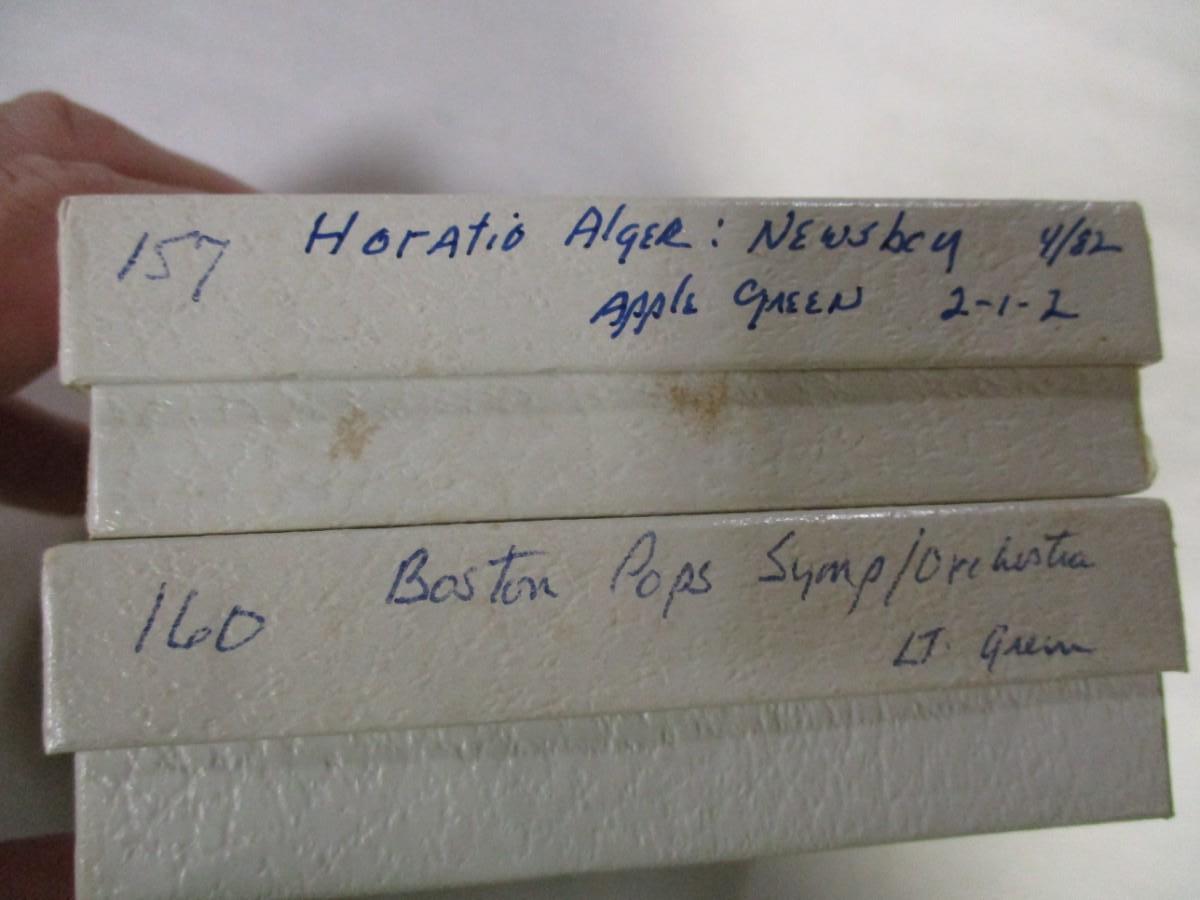 157 Horatio Alger: Newsboy 4/82
Apple Green 2-1-2
160 Boston Pops Symp/Orchestra
LT. Green